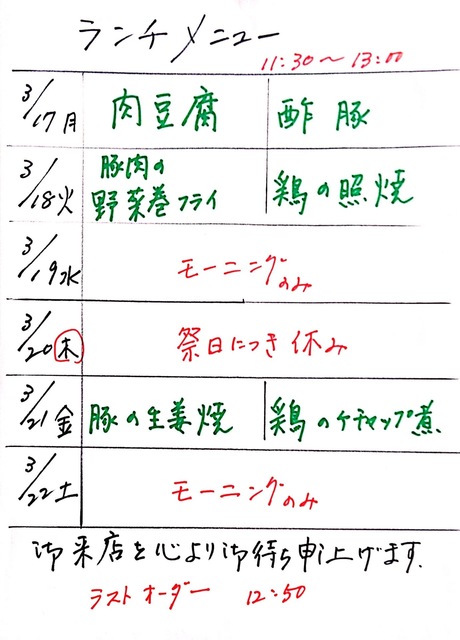 ランチメニュー
11:30〜13:00
3/17月 肉豆腐 酢豚
3/18火 豚肉の
野菜巻フライ 鶏の照焼
3/19水 モーニングのみ
3/20木 祭日につき休み
3/21金 豚の生姜焼 鶏のケチャップ煮
3/22土 モーニングのみ
御来店を心より御待ち申上げます.
ラストオーダー 12:50